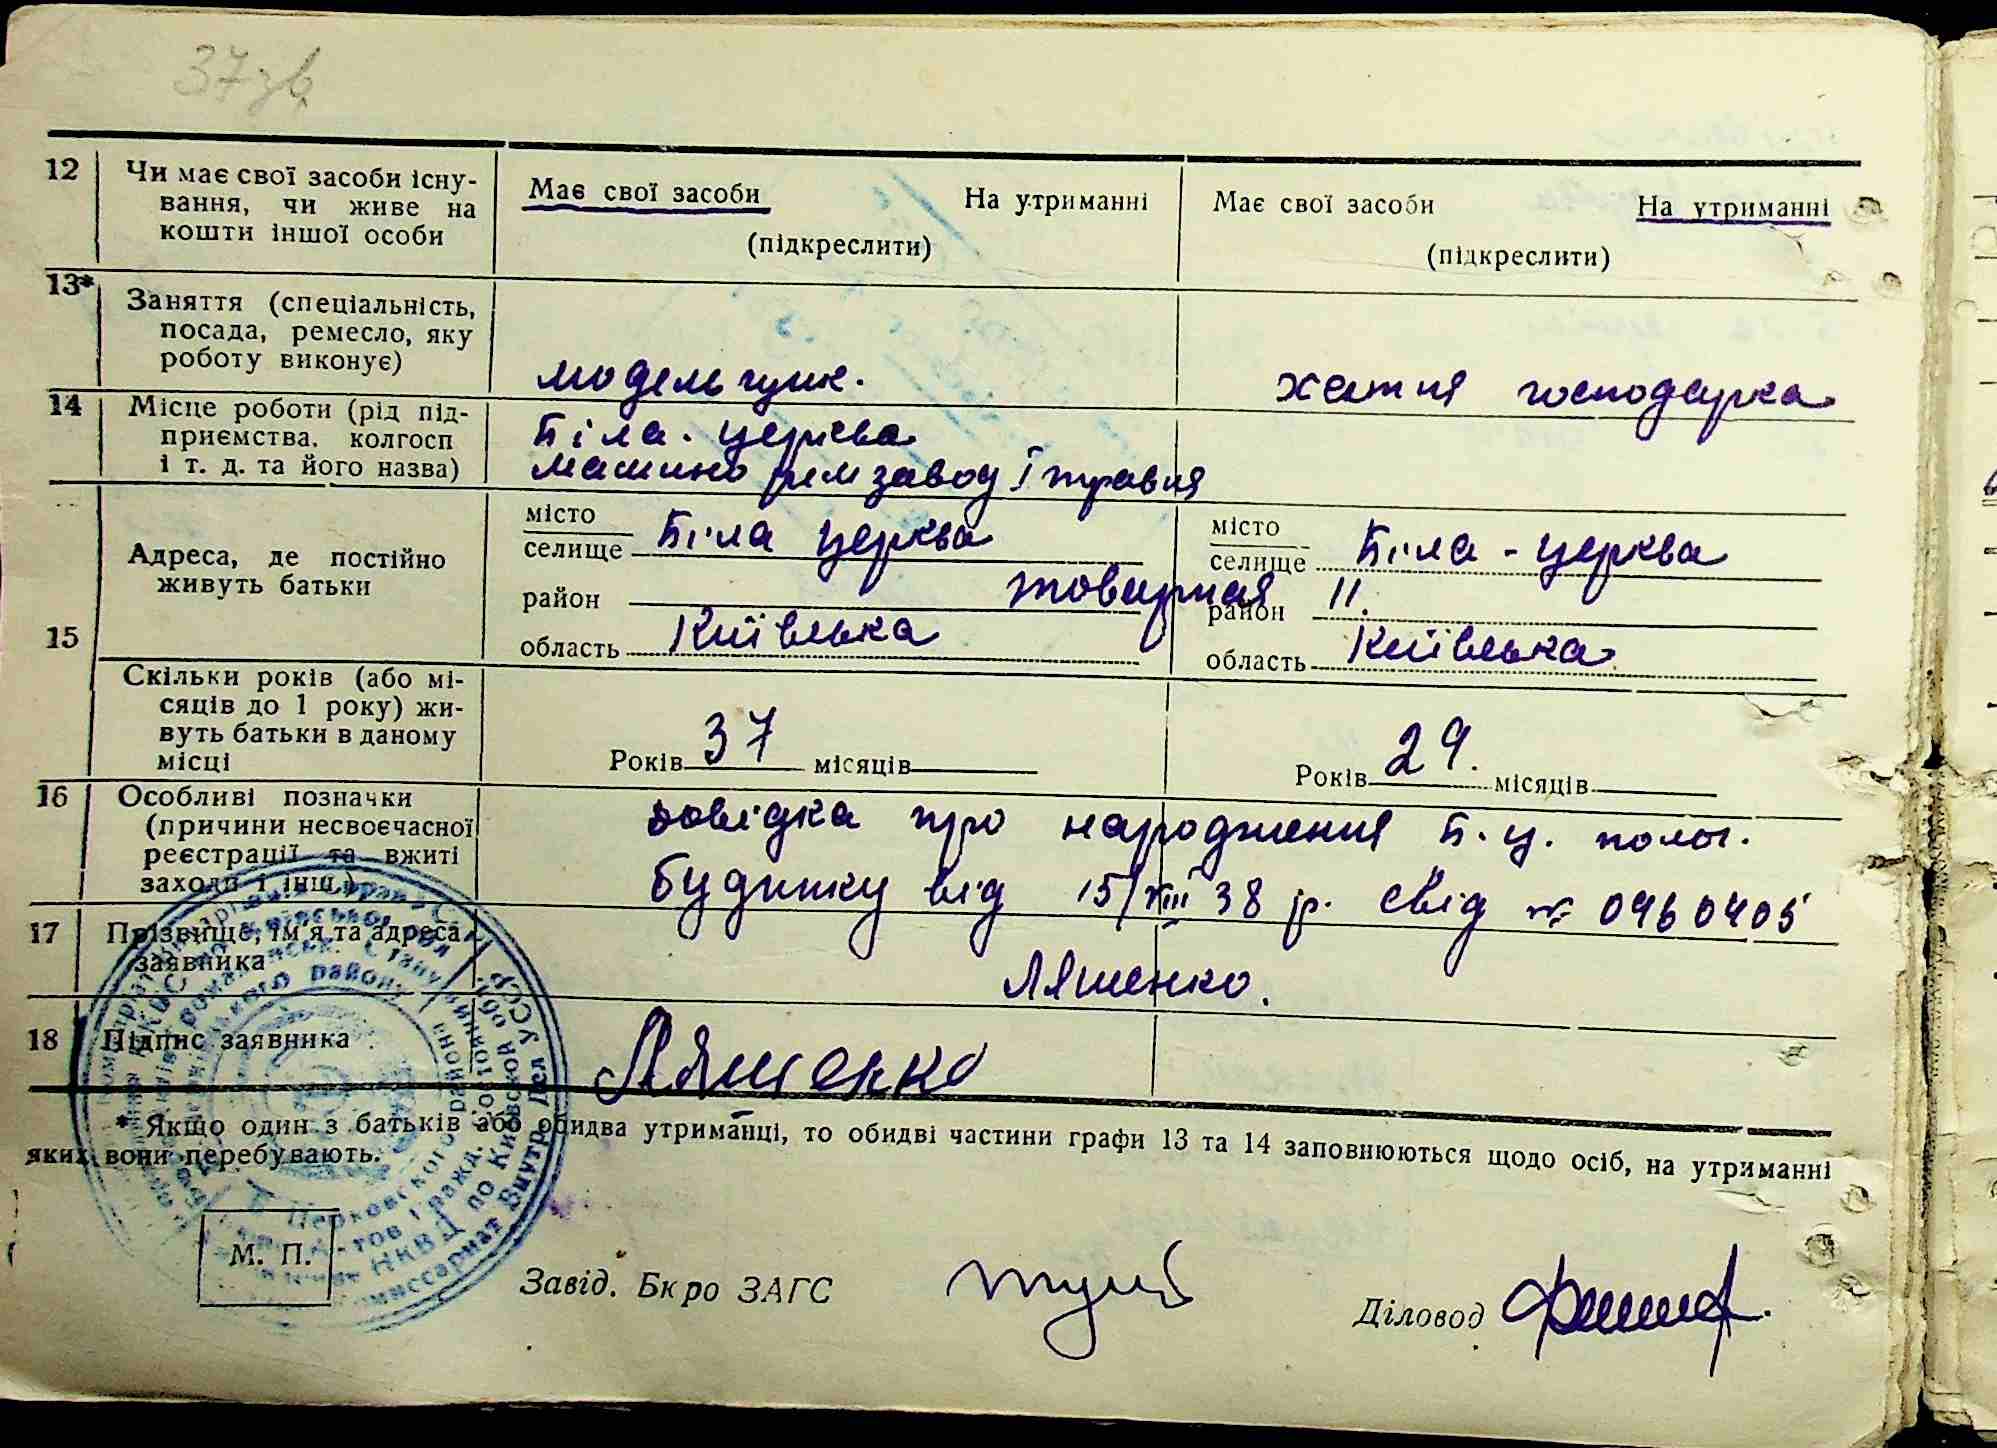 37 зв.
12 Чи має свої засоби існу-
вання, чи живе на
кошти іншої особи
Має свої засоби На утриманні
(підкреслити)
Має свої засоби На утриманні
(підкреслити)
13* Заняття (спеціальність,
посада, ремесло, яку
роботу виконує)
модельщик.
хатня господарка
14 Місце роботи (рід під-
приємства, колгосп
і т. д. та його назва)
Біла-церква
машино рем завод 1 травня
15
Адреса, де постійно
живуть батьки
місто
селище Біла церква
район
область Київська
товарная 11.
місто
селище Біла-церква
район
область Київська
Скільки років (або мі-
сяців до 1 року) жи-
вуть батьки в даному
місці
Років 37 місяців
Років 29. місяців
16 Особливі позначки
(причини несвоєчасної
реєстрації та вжиті
заходи і інш.)
довідка про народження Б.ц. полог.
будинку від 15/XIII 38 р. свід № 0460405
17 Прізвище, ім'я та адреса
заявника
Ляшенко.
18 Підпис заявника
Ляшенко
* Якщо один з батьків або обидва утриманці, то обидві частини графи 13 та 14 заповнюються щодо осіб, на утриманні
яких вони перебувають.
М. П.
Завід. Бюро ЗАГС
Діловод